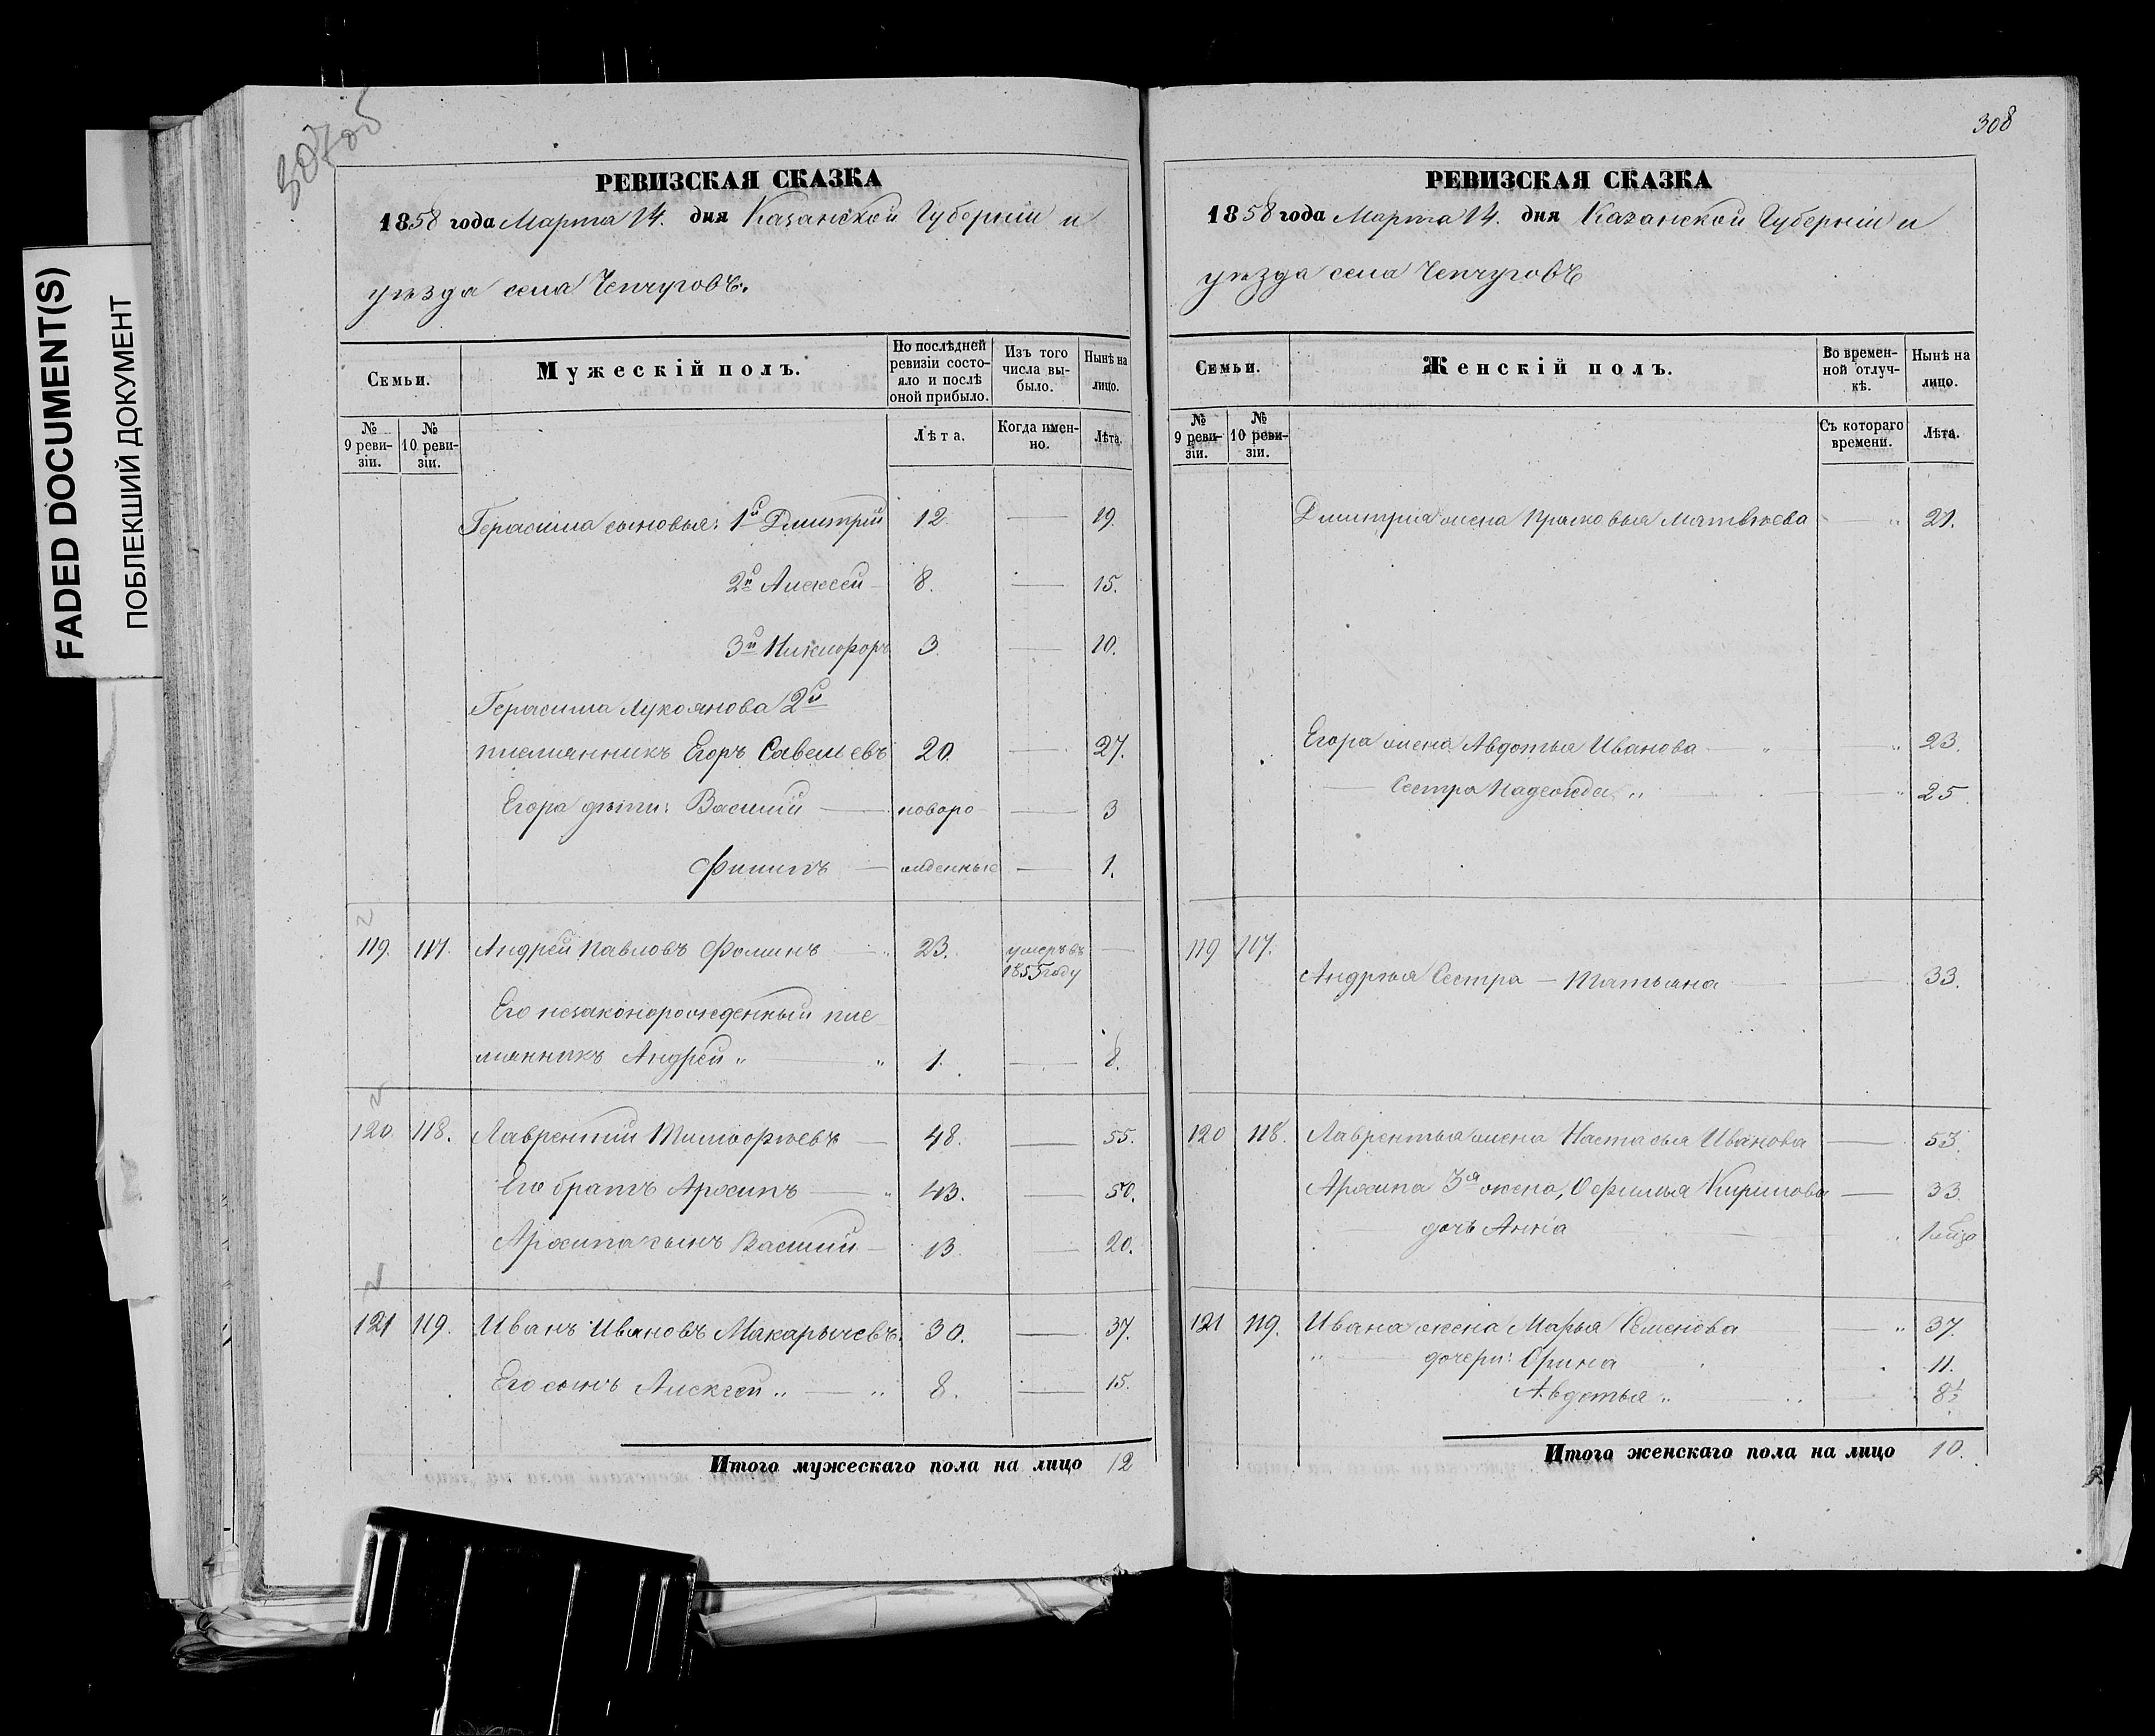 FADED DOCUMENT(S)
ПОБЛЕКШИЙ ДОКУМЕНТ
307об
РЕВИЗСКАЯ СКАЗКА
1858 года Марта 14. дня Казанской Губерніи и
уѣзда села Чепчуговъ.
Семьи.
Мужескій полъ.
По послѣдней ревизіи состояло и послѣ оной прибыло.
Изъ того числа выбыло.
Нынѣ на лицо.
№ 9 ревизіи.
№ 10 ревизіи.
Лѣта.
Когда именно.
Лѣта.
Герасима сыновья: 1й Дмитрій 12. — 19.
2й Алексей 8. — 15.
3й Никифоръ 3. — 10.
Герасима Лукоянова 2й
племянникъ Егоръ Савельевъ 20. — 27.
Егора дѣти: Василій — новоро — 3
Филипъ — жденные — 1.
119. 117. Андрей Павловъ Фоминъ — 23. умеръ въ —
1855 году
Его незаконорожденный пле
мянникъ Андрей „ — „ 1. — 8.
120. 118. Лаврентій Тимофѣевъ — 48. — 55.
Его братъ Архипъ — „ 43. — 50.
Архипа сынъ Василій — 13. — 20.
121 119. Иванъ Ивановъ Макарычевъ. 30. — 37.
Его сынъ Алексей „ — „ 8. — 15.
Итого мужескаго пола на лицо 12
308
РЕВИЗСКАЯ СКАЗКА
1858 года Марта 14. дня Казанской Губерніи и
уѣзда села Чепчуговъ
Семьи.
Женскій полъ.
Во временной отлучкѣ.
Нынѣ на лицо.
№ 9 ревизіи.
№ 10 ревизіи.
Съ котораго времени.
Лѣта.
Дмитрія жена Прасковья Матвѣева — „ 21.
Егора жена Авдотья Иванова „ — „ 23.
— Сестра Надежда „ — „ 25
119 117.
Андрея Сестра — Татьяна — 33.
120 118. Лаврентья жена Настасья Иванова — 53.
Архипа 3я жена, Офимья Кирилова — 33.
— дочь Анна — „
121 119. Ивана жена Марья Семенова — „ 37.
„ — дочери: Орина 11.
Авдотья „ 8½
Итого женскаго пола на лицо 10.